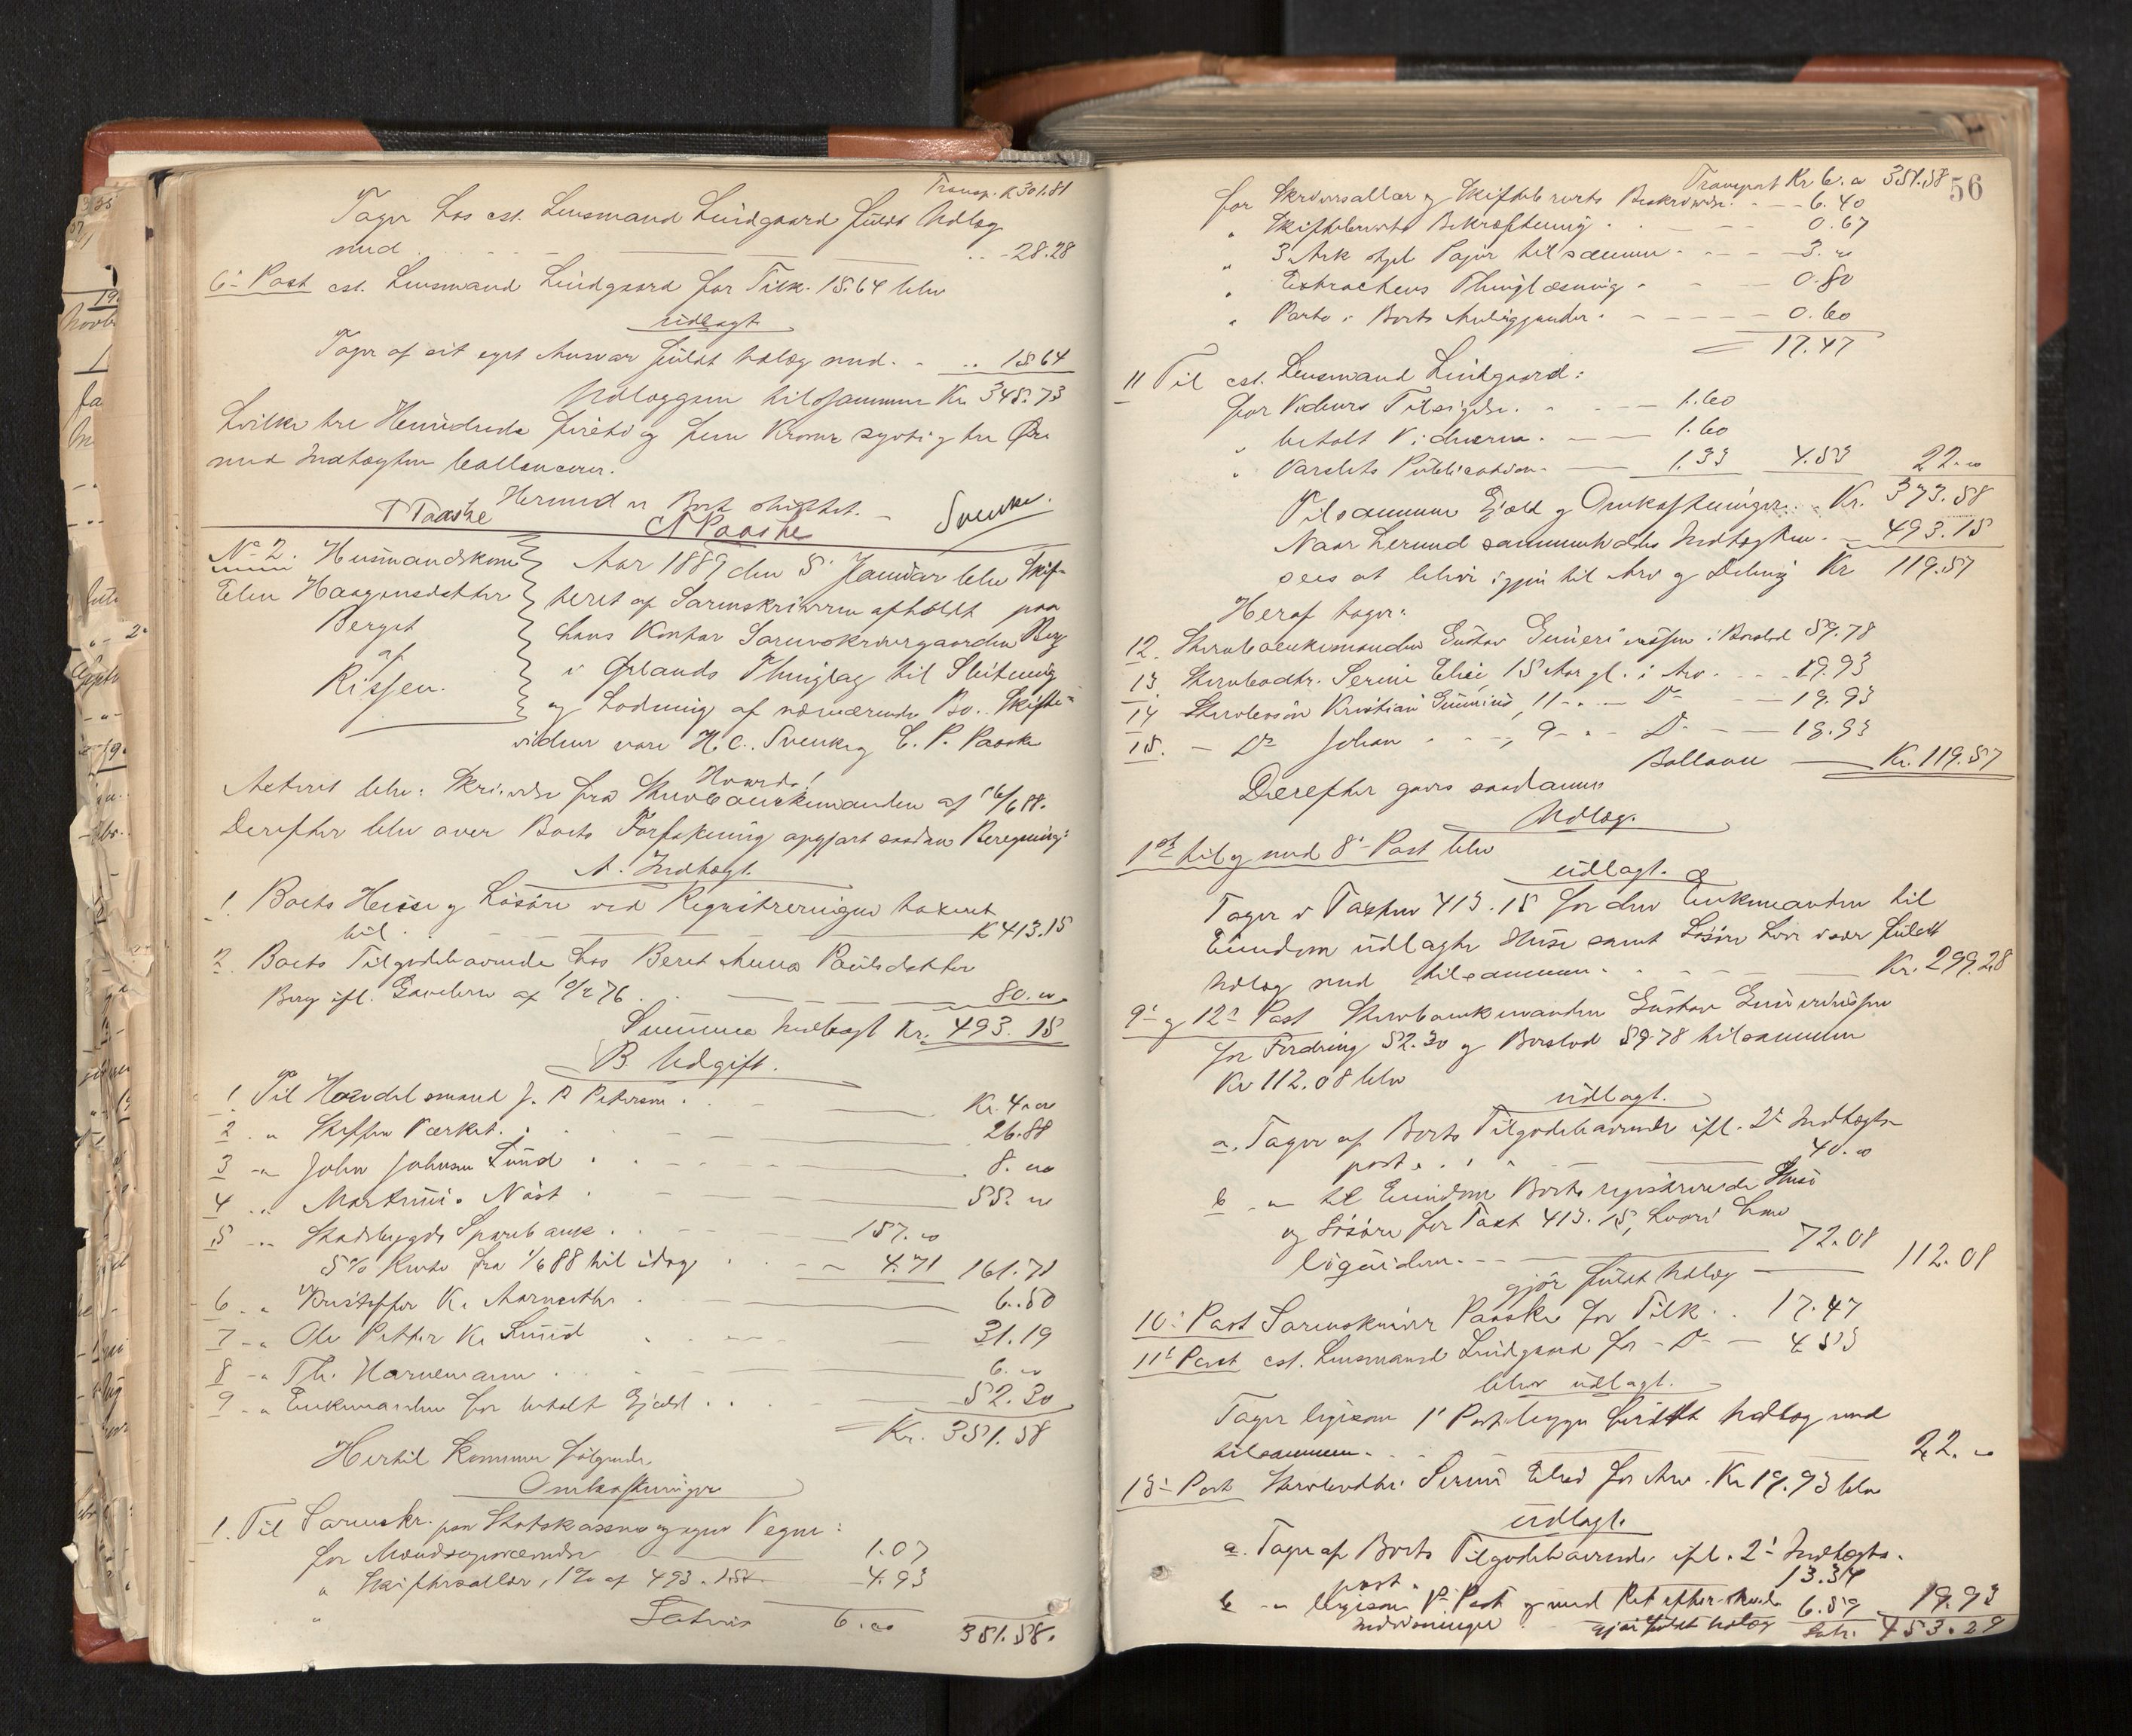 Transp. K 301.81
Tager hos cst. Lensmand Lindgaard fuldt Udlæg
med 28.28
6te Post cst. Lensmand Lindgaard for Tilk. 15.64 blev
udlagt
Tager af sit eget Ansvar fuldt Udlæg med 15.64
Udlæggene tilsammen Kr. 345.73
hvilke tre Hundrede firti og fem Kroner sytti og tre Øre
med Indtægten ballancerer.
Hermed er Boet sluttet.
T Paaske C Paaske Svenke
No 2. Husmandskone
Elen Haagensdatter
Berget
af
Rissen.
Aar 1889 den 5' Januar blev Skif-
teret af Sorenskriveren afholdt paa
hans Kontor Sorenskrivergaarden Berg
i Ørlands Thinglag til Slutning
og Lodning af nærværende Bo. Skifte-
vidner vare H. C. Svenke og C. P. Paaske
Acteret blev: Skrivelse fra Stervboenkemanden af 16/6 88.
Derefter blev over Boets Forfatning opgjort saadan Beregning:
A. Indtægt.
1. Boets Huse og Løsøre ved Registreringen taxeret
til K 413.15
2. Boets Tilgodehavende hos Beret Anna Paulsdatter
Berg ifl. Gavebrev af 10/2 76 80. "
Summa Indtægt Kr. 493.15
B. Udgift.
1. Til Handelsmand J. P. Peterson Kr. 4. "
2 " Steffen Værket. 26.88
3 " John Johnsen Lund 8. "
4 " Martinus Nøst 55. "
5 " Stadsbygds Sparebank 157. "
5% Rente fra 1/6 88 til idag 4.71 161.71
6 " Kristoffer K. Aarnseth 6.50
7 " Ole Petter K. Lund 31.19
8 " Th. Harnemann 6. "
9 " Enkemanden for betalt Gjæld 52.30
Kr. 351.58
Hertil kommer følgende
Omkostninger
1. Til Sorenskr. paa Statskassens og egne Vegne:
for 1.07
" Skiftesallar, 1% af 493.15 4.93
" Lateris 6. " 351.58.
56
Transport Kr 6. " 351.58
for Skriversallar og Skiftebrevets Beskrivelse 6.40
" Skiftebrevets Bekræftning 0.67
" 3 Ark stpl. Papir tilsammen 3. "
" Extractens Thinglæsning 0.80
" Porto i Boets Anliggender 0.60
17.47
11 Til cst. Lensmand Lindgaard:
for Vidners Tilsigelse 1.60
" betalt Vidnerne 1.60
" Varslets Publication 1.33 4.53 22. "
Tilsammen Gjæld og Omkostninger Kr. 373.58
Naar hermed sammenholdes Indtægten 493.15
sees at blive igjen til Arv og Deling Kr 119.57
Heraf tager:
12. Stervboenkemanden Gustav i Boslod 59.78
13. Stervbodtr. Serine Elise, 15 Aar gl. i Arv 19.93
14 Stervbosøn Kristian , 11 " Do 19.93
15. " Do Johan , 9 " Do 19.93
Ballance Kr. 119.57
Derefter gjøres saadanne
Udlæg.
1ste til og med 8de Post blev
udlagt.
Tager i Taxten 413.15 for den Enkemanden til
Eiendom udlagte Huse samt Løsøre hver især fuldt
Udlæg med tilsammen Kr. 299.28
9de og 12te Post Stervboenkemanden Gustav
for Fordring 52.30 og Boslod 59.78 tilsammen
Kr 112.08 blev
udlagt.
a. Tager af Boets Tilgodehavende ifl. 2den Indtægts-
post 40. "
b " til Eiendom Boets registrerede Huse
og Løsøre for Taxt 413.15, hvori han
liqviderer 72.08
gjør fuldt Udlæg 112.08
10de Post Sorenskriver Paaske for Tilk. 17.47
11te Post cst. Lensmand Lindgaard for Do 4.53
blev udlagt.
Tager ligesom 1' Post begge fuldt Udlæg med
tilsammen 22. "
13de Post Stervbodtr. Serine Elise for Arv Kr 19.93 blev
udlagt.
a. Tager af Boets Tilgodehavende ifl. 2den Indtægts-
post 13.34
b " ligesom 1ste Post og med Ret efter
6.59 19.93
gjør fuldt Udlæg Latr. 453.29